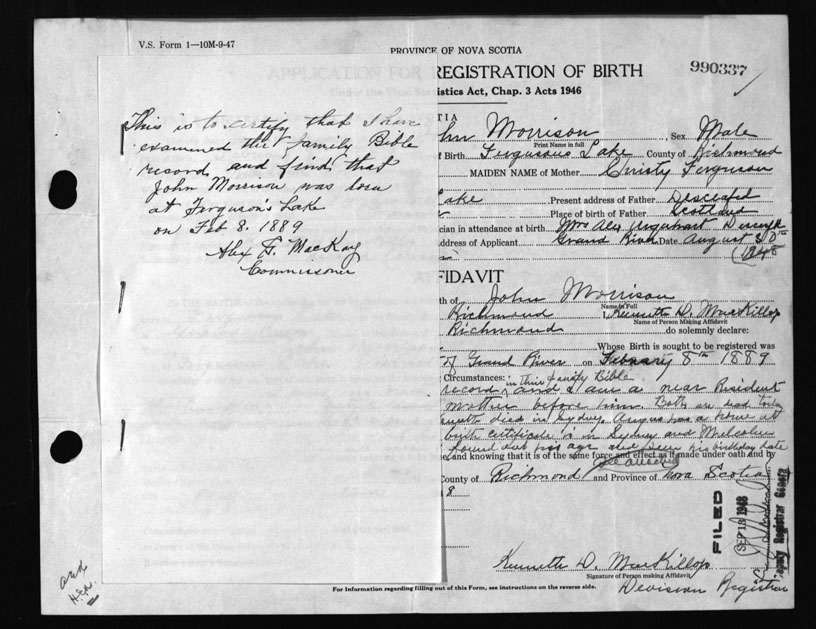 V.S. Form 1—10M-9-47
PROVINCE OF NOVA SCOTIA
APPLICATION FOR REGISTRATION OF BIRTH
990337
istics Act, Chap. 3 Acts 1946
This is to certify that I have
examined the family Bible
record and find that
John Morrison was born
at Ferguson's Lake
on Feb 8. 1889
Alex F. MacKay
Commissoner
TIA
hn Morrison Sex Male
Print Name in full
f Birth Fergusons Lake County of Richmond
MAIDEN NAME of Mother Christy Ferguson
ake Present address of Father Desceased
Place of birth of Father Scotland
cian in attendance at birth Mrs Alex Urquhart
ddress of Applicant Grand River Date August 30th
1948
FIDAVIT
th of John Morrison
Name in Full
Richmond I, Kenneth D. MacKillop
Name of Person Making Affidavit
Richmond do solemnly declare:
Whose Birth is sought to be registered was
of Grand River on February 8th 1889
Circumstances: in their family Bible
record, and I am a near Resident
mother before him Both are dead
died in Sydney Angus has a home at
birth certificate is in Sydney and Malcolm
found out his age and his birthday date
e, and knowing that it is of the same force and effect as if made under oath and by
County of Richmond and Province of Nova Scotia
8
FILED
SEP 18 1948
Deputy Registrar General
Kenneth D. MacKillop
Signature of Person making Affidavit
Devision Registrar
and
For Information regarding filling out of this Form, see instructions on the reverse side.